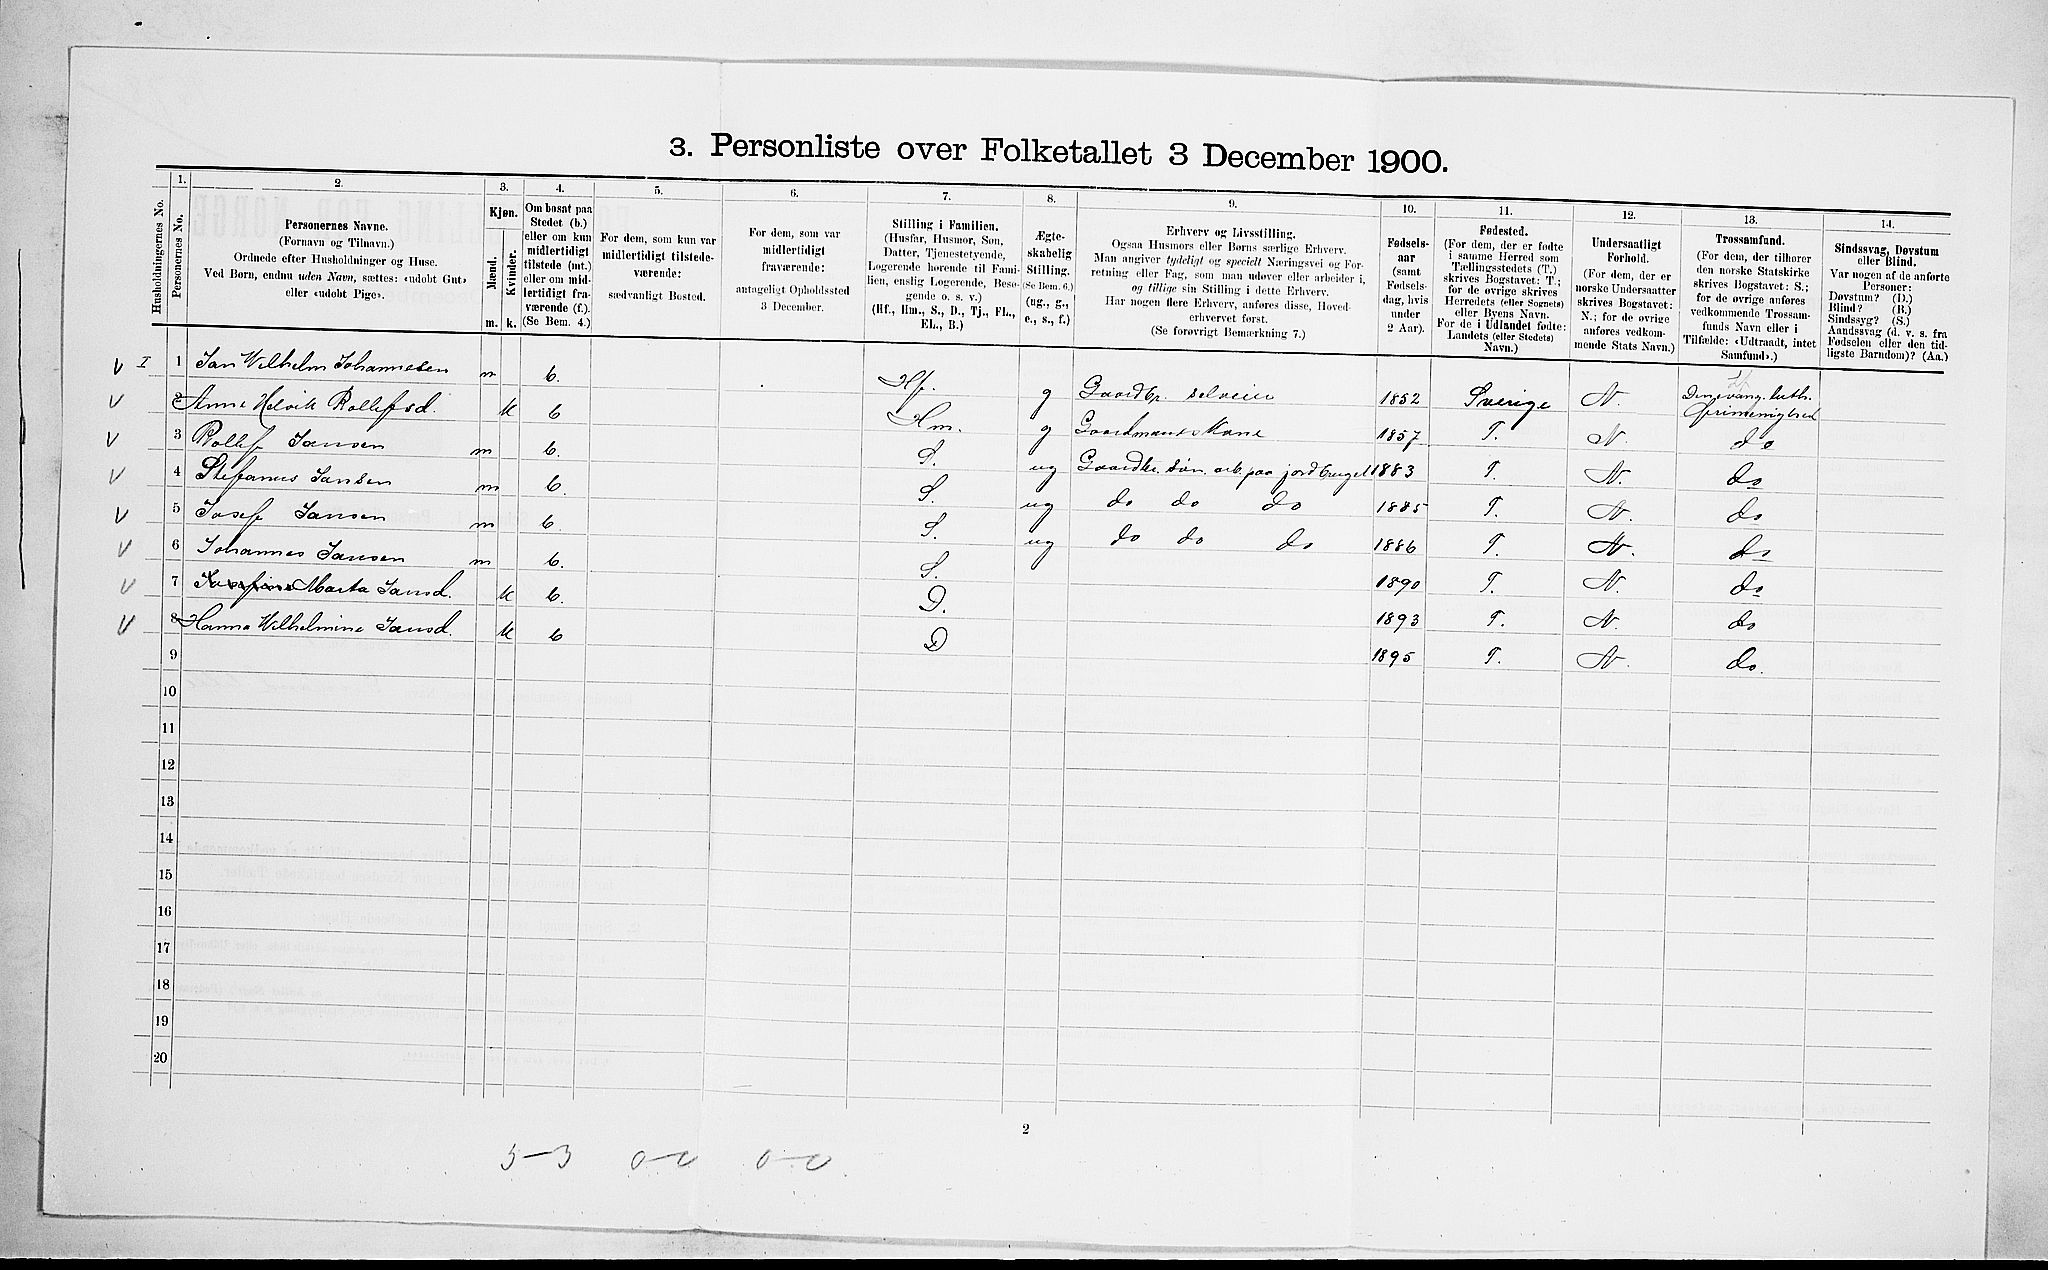 3. Personliste over Folketallet 3 December 1900.
Husholdningernes No.
1. Personernes No.
2. Personernes Navne.
(Fornavn og Tilnavn.)
Ordnede efter Husholdninger og Huse.
Ved Børn, endnu uden Navn, sættes: «udøbt Gut»
eller «udøbt Pige».
3. Kjøn.
Mænd. m.
Kvinder. k.
4. Om bosat paa
Stedet (b.)
eller om kun
midlertidigt
tilstede (mt.)
eller om mid-
lertidigt fra-
værende (f.).
(Se Bem. 4.)
5. For dem, som kun var
midlertidigt tilstede-
værende:
sædvanligt Bosted.
6. For dem, som var
midlertidigt
fraværende:
antageligt Opholdssted
3 December.
7. Stilling i Familien.
(Husfar, Husmor, Søn,
Datter, Tjenestetyende,
Logerende hørende til Fami-
lien, enslig Logerende, Besø-
gende o. s. v.)
(Hf., Hm., S., D., Tj., FL.,
EL., B.)
8. Ægte-
skabelig
Stilling.
(Se Bem. 6.)
(ug., g.,
e., s., f.)
9. Erhverv og Livsstilling.
Ogsaa Husmors eller Børns særlige Erhverv.
Man angiver tydeligt og specielt Næringsvei og For-
retning eller Fag, som man udøver eller arbeider i,
og tillige sin Stilling i dette Erhverv.
Har nogen flere Erhverv, anføres disse, Hoved-
erhvervet først.
(Se forøvrigt Bemærkning 7.)
10. Fødsels-
aar
(samt
Fødsels-
dag, hvis
under
2 Aar).
11. Fødested.
(For dem, der er fødte
i samme Herred som
Tællingsstedets (T.)
skrives Bogstavet: T.;
for de øvrige skrives
Herredets (eller Sognets)
eller Byens Navn.
For de i Udlandet fødte:
Landets (eller Stedets)
Navn.)
12. Undersaatligt
Forhold.
(For dem, der er
norske Undersaatter
skrives Bogstavet:
N.; for de øvrige
anføres vedkom-
mende Stats Navn.)
13. Trossamfund.
(For dem, der tilhører
den norske Statskirke
skrives Bogstavet: S.;
for de øvrige anføres
vedkommende Trossam-
funds Navn eller i
Tilfælde: «Udtraadt, intet
Samfund».)
14. Sindssvag, Døvstum
eller Blind.
Var nogen af de anførte
Personer:
Døvstum? (D.)
Blind? (B.)
Sindssyg? (S.)
Aandssvag (d. v. s. fra
Fødselen eller den tid-
ligste Barndom)? (Aa.)
V I 1 Jan Wilhelm Johannesen m b. Hf. g Gaardbr. selveier 1852 Sverige N. Den evang. luth.
frimenighed
V 2 Anne Helvik Rollefsd. k b Hm. g Gaardmands Kone 1857 T. N. do
V 3 Rollef Jansen m b. S. ug Gaardbr. søn. arb. paa jordbruget 1883 T. N. do
V 4 Stefanus Jansen m b. S. ug do do do 1885 T. N. do
V 5 Josef Jansen m b. S. ug do do do 1886 T. N. do
V 6 Johannes Jansen m b. S. 1890 T. N. do
V 7 Marta Jansd. k b. D. 1893 T. N. do
V 8 Hanna Wilhelmine Jansd. k b D 1895 T. N. do.
9
10
11
12
13
14
15
16
17
18
19
20
2
5-3 0-0 0-0.